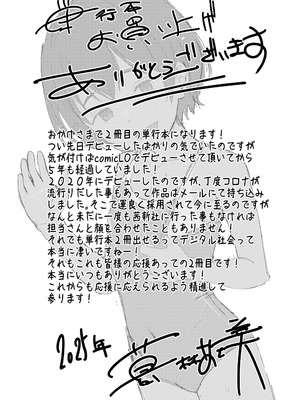 単行本
お買い上げ
ありがとうございます
おかげさまで2冊目の単行本になります!
つい先日デビューしたばかりの気でいたのですが
気が付けばcomicLOでデビューさせて頂いてから
5年も経過していました!
2020年にデビューしたのですが、丁度コロナが
流行りだした事もあって作品はメールにて持ち込み
しました。そこで運良く採用されて今に至るのですが
なんと未だに一度も茜新社に行った事もなければ
担当さんと顔を合わせたこともありません!
それでも単行本2冊出せるってデジタル社会って
本当に凄いですねー!
それもこれも皆様の応援あっての2冊目です!
本当にいつもありがとうございます!
これからも応援に応えられるよう精進して
参ります!
2025年